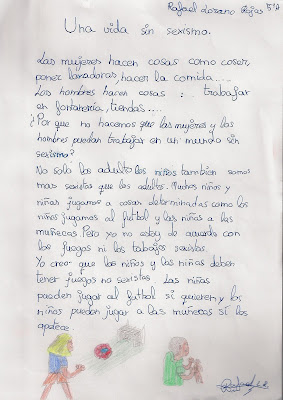 Rafael Lozano Rojas 5ºA
Una vida sin sexismo.
Las mujeres hacen cosas como coser,
poner lavadoras, hacer la comida....
Los hombres hacen cosas : .. trabajar
en fontanería, tiendas....
¿Por que no hacemos que las mujeres y los
hombres puedan trabajar en un mundo sin
sexismo?
No solo los adultos los niños también somos
mas sexistas que los adultos. Muchos niños y
niñas jugamos a cosas determinadas como los
niños jugamos al futbol y las niñas a las
muñecas. Pero yo no estoy de acuerdo con
los juegos ni los trabajos sexistas.
Yo creo que los niños y las niñas deben
tener juegos no sexistas. Las niñas
pueden jugar al futbol si quieren y los
niños pueden jugar a las muñecas si los
apetece.